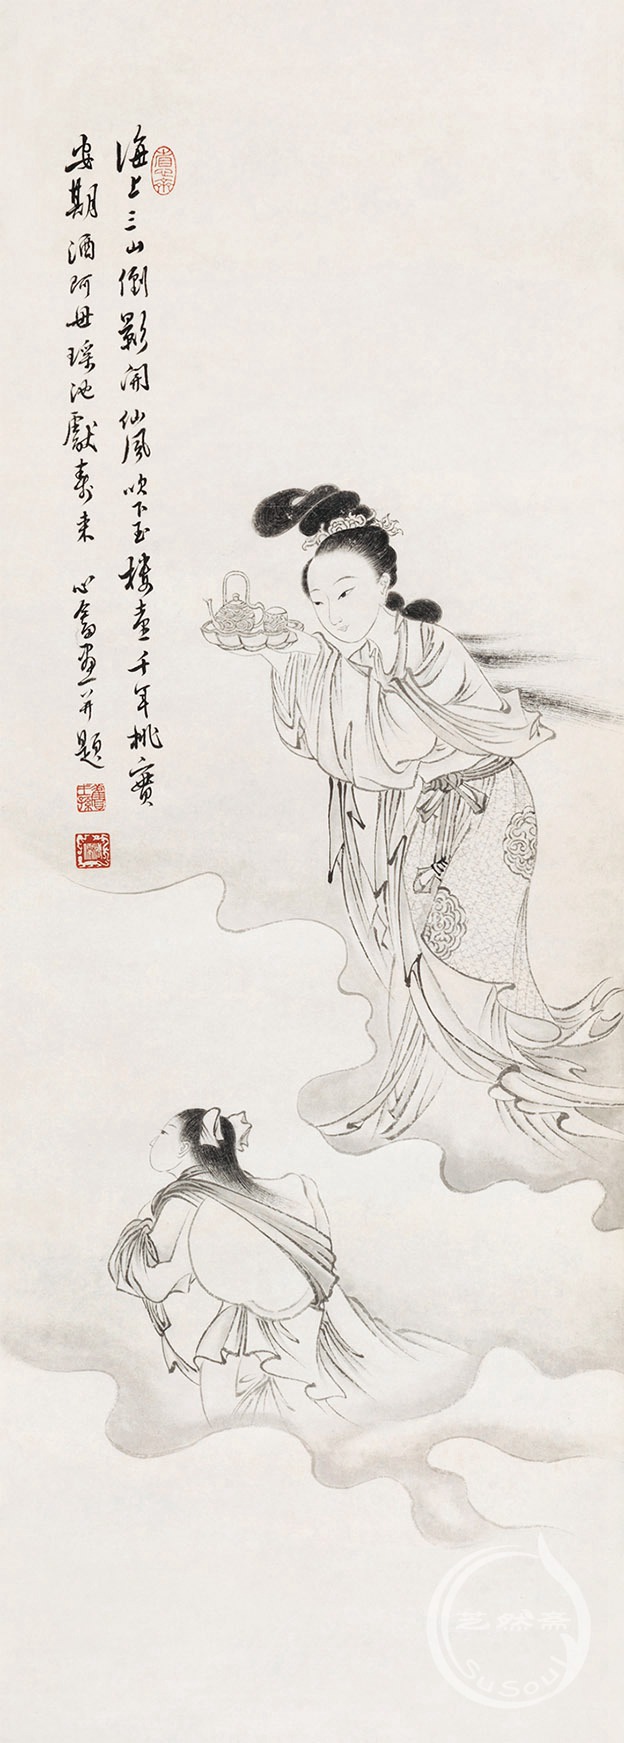 省心齋
海上三山倒影開仙風吹下玉樓臺千年桃實
安期酒阿母瑤池獻壽來 心畬畫并題
舊王孫
艺然斋
SuSoul